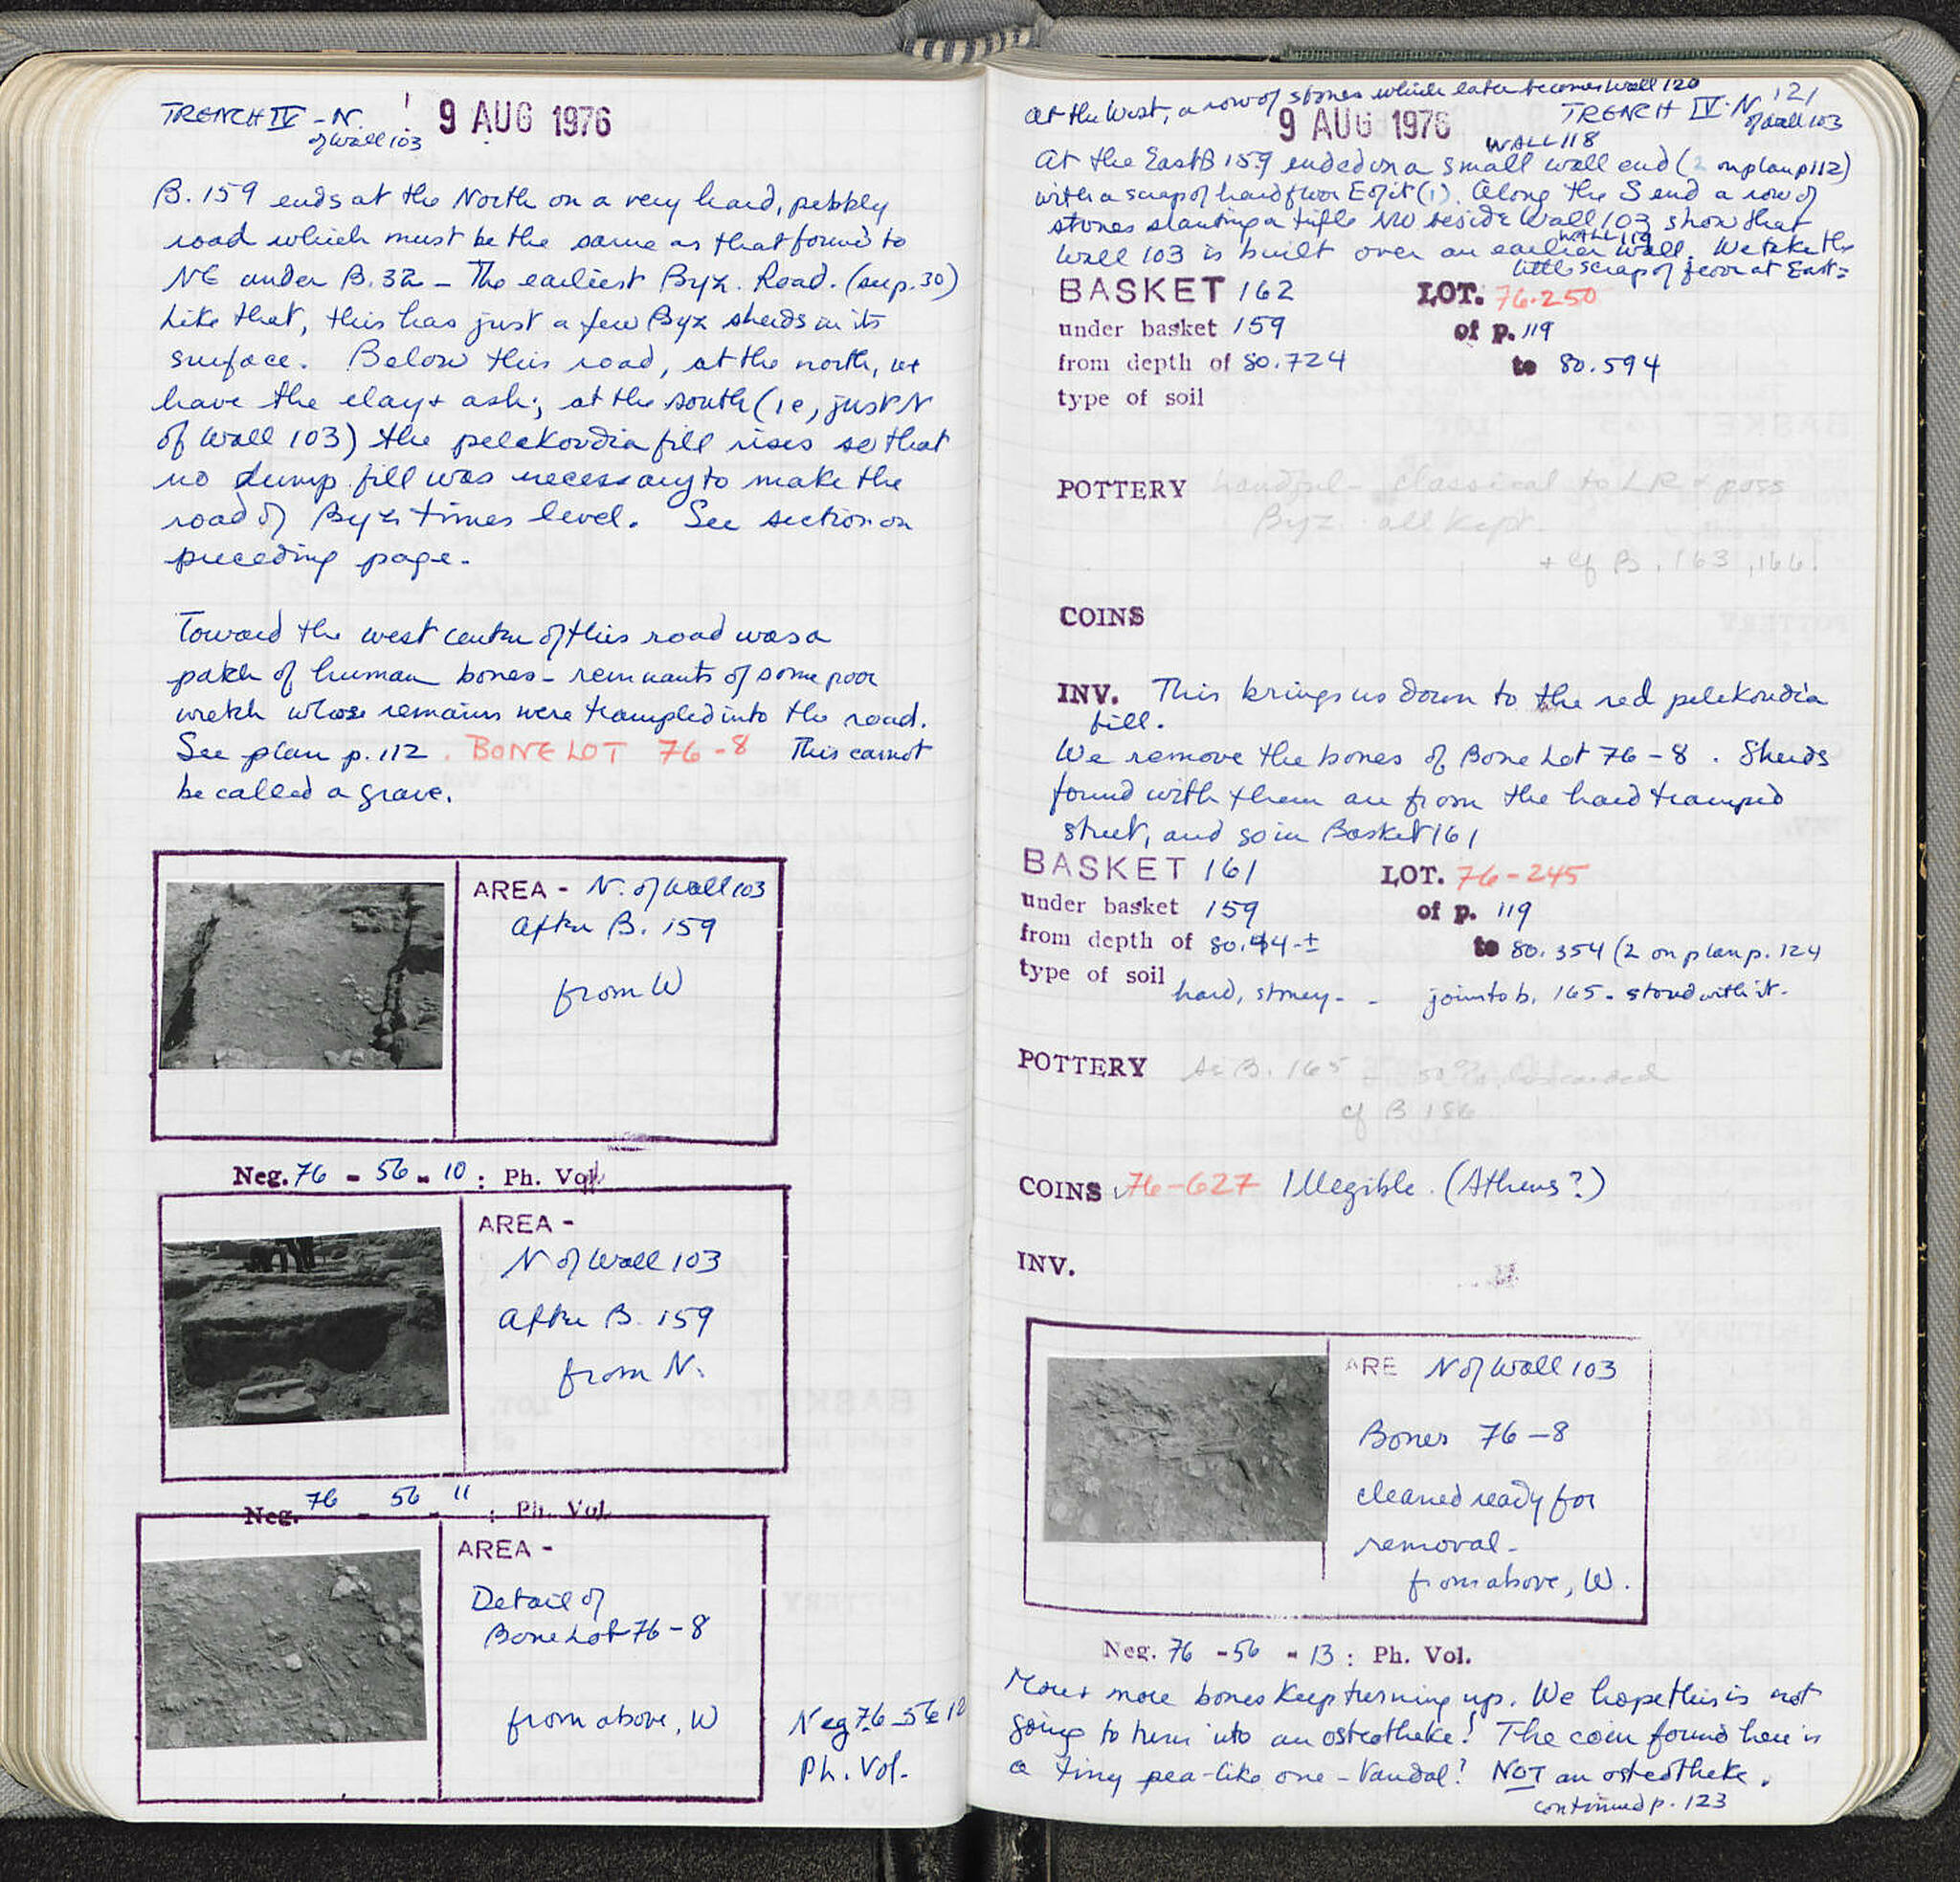 TRENCH IV - N. 9 AUG 1976
of Wall 103
B. 159 ends at the North on a very hard, pebbly
road which must be the same as that found to
NE under B. 32 - The earliest Byz. Road. (see p. 30)
Like that, this has just a few Byz sherds in its
surface. Below this road, at the north, we
have the clay + ash; at the south (ie, just N
of Wall 103) the pelekoudia fill rises so that
no dump fill was necessary to make the
road of Byz times level. See section on
preceding page.
Toward the west center of this road was a
patch of human bones - remnants of some poor
wretch whose remains were trampled into the road.
See plan p. 112. BONE LOT 76-8 This cannot
be called a grave.
AREA - N. of Wall 103
After B. 159
from W
Neg. 76 - 56 - 10 : Ph. Vol.
AREA -
N of Wall 103
After B. 159
from N.
Neg. 76 - 56 - 11 : Ph. Vol.
AREA -
Detail of
Bone Lot 76-8
from above, W
Neg 76-56-12
Ph. Vol.
At the West, a row of stones which later becomes Wall 120
121
9 AUG 1976 TRENCH IV - N
of Wall 103
WALL 118
At the East B 159 ended on a small wall end (2 on plan p 112)
with a scrap of hard floor E of it (1). Along the S end a row of
stones slanting a trifle NW beside Wall 103 show that
WALL 119
Wall 103 is built over an earlier wall. We take the
little scrap of floor at East =
BASKET 162 LOT. 76-250
under basket 159 of p. 119
from depth of 80.724 to 80.594
type of soil
POTTERY handful - classical to LR + poss
Byz. all kept.
+ cf B. 163, 166.
COINS
INV. This brings us down to the red pelekoudia
fill.
We remove the bones of Bone Lot 76-8. Sherds
found with them are from the hard tramped
street, and so in Basket 161
BASKET 161 LOT. 76-245
under basket 159 of p. 119
from depth of 80.44 -± to 80.354 (2 on plan p. 124
type of soil hard, stoney - - joins to b. 165 - stored with it.
POTTERY See B. 165 50% discarded
cf B 156
COINS 76-627 Illegible. (Athens?)
INV.
ARE N of Wall 103
Bones 76-8
cleaned ready for
removal -
from above, W.
Neg. 76 - 56 - 13 : Ph. Vol.
More + more bones keep turning up. We hope this is not
going to turn into an osteotheke! The coin found here is
a tiny pea-like one - Vandal? NOT an osteotheke.
continued p. 123